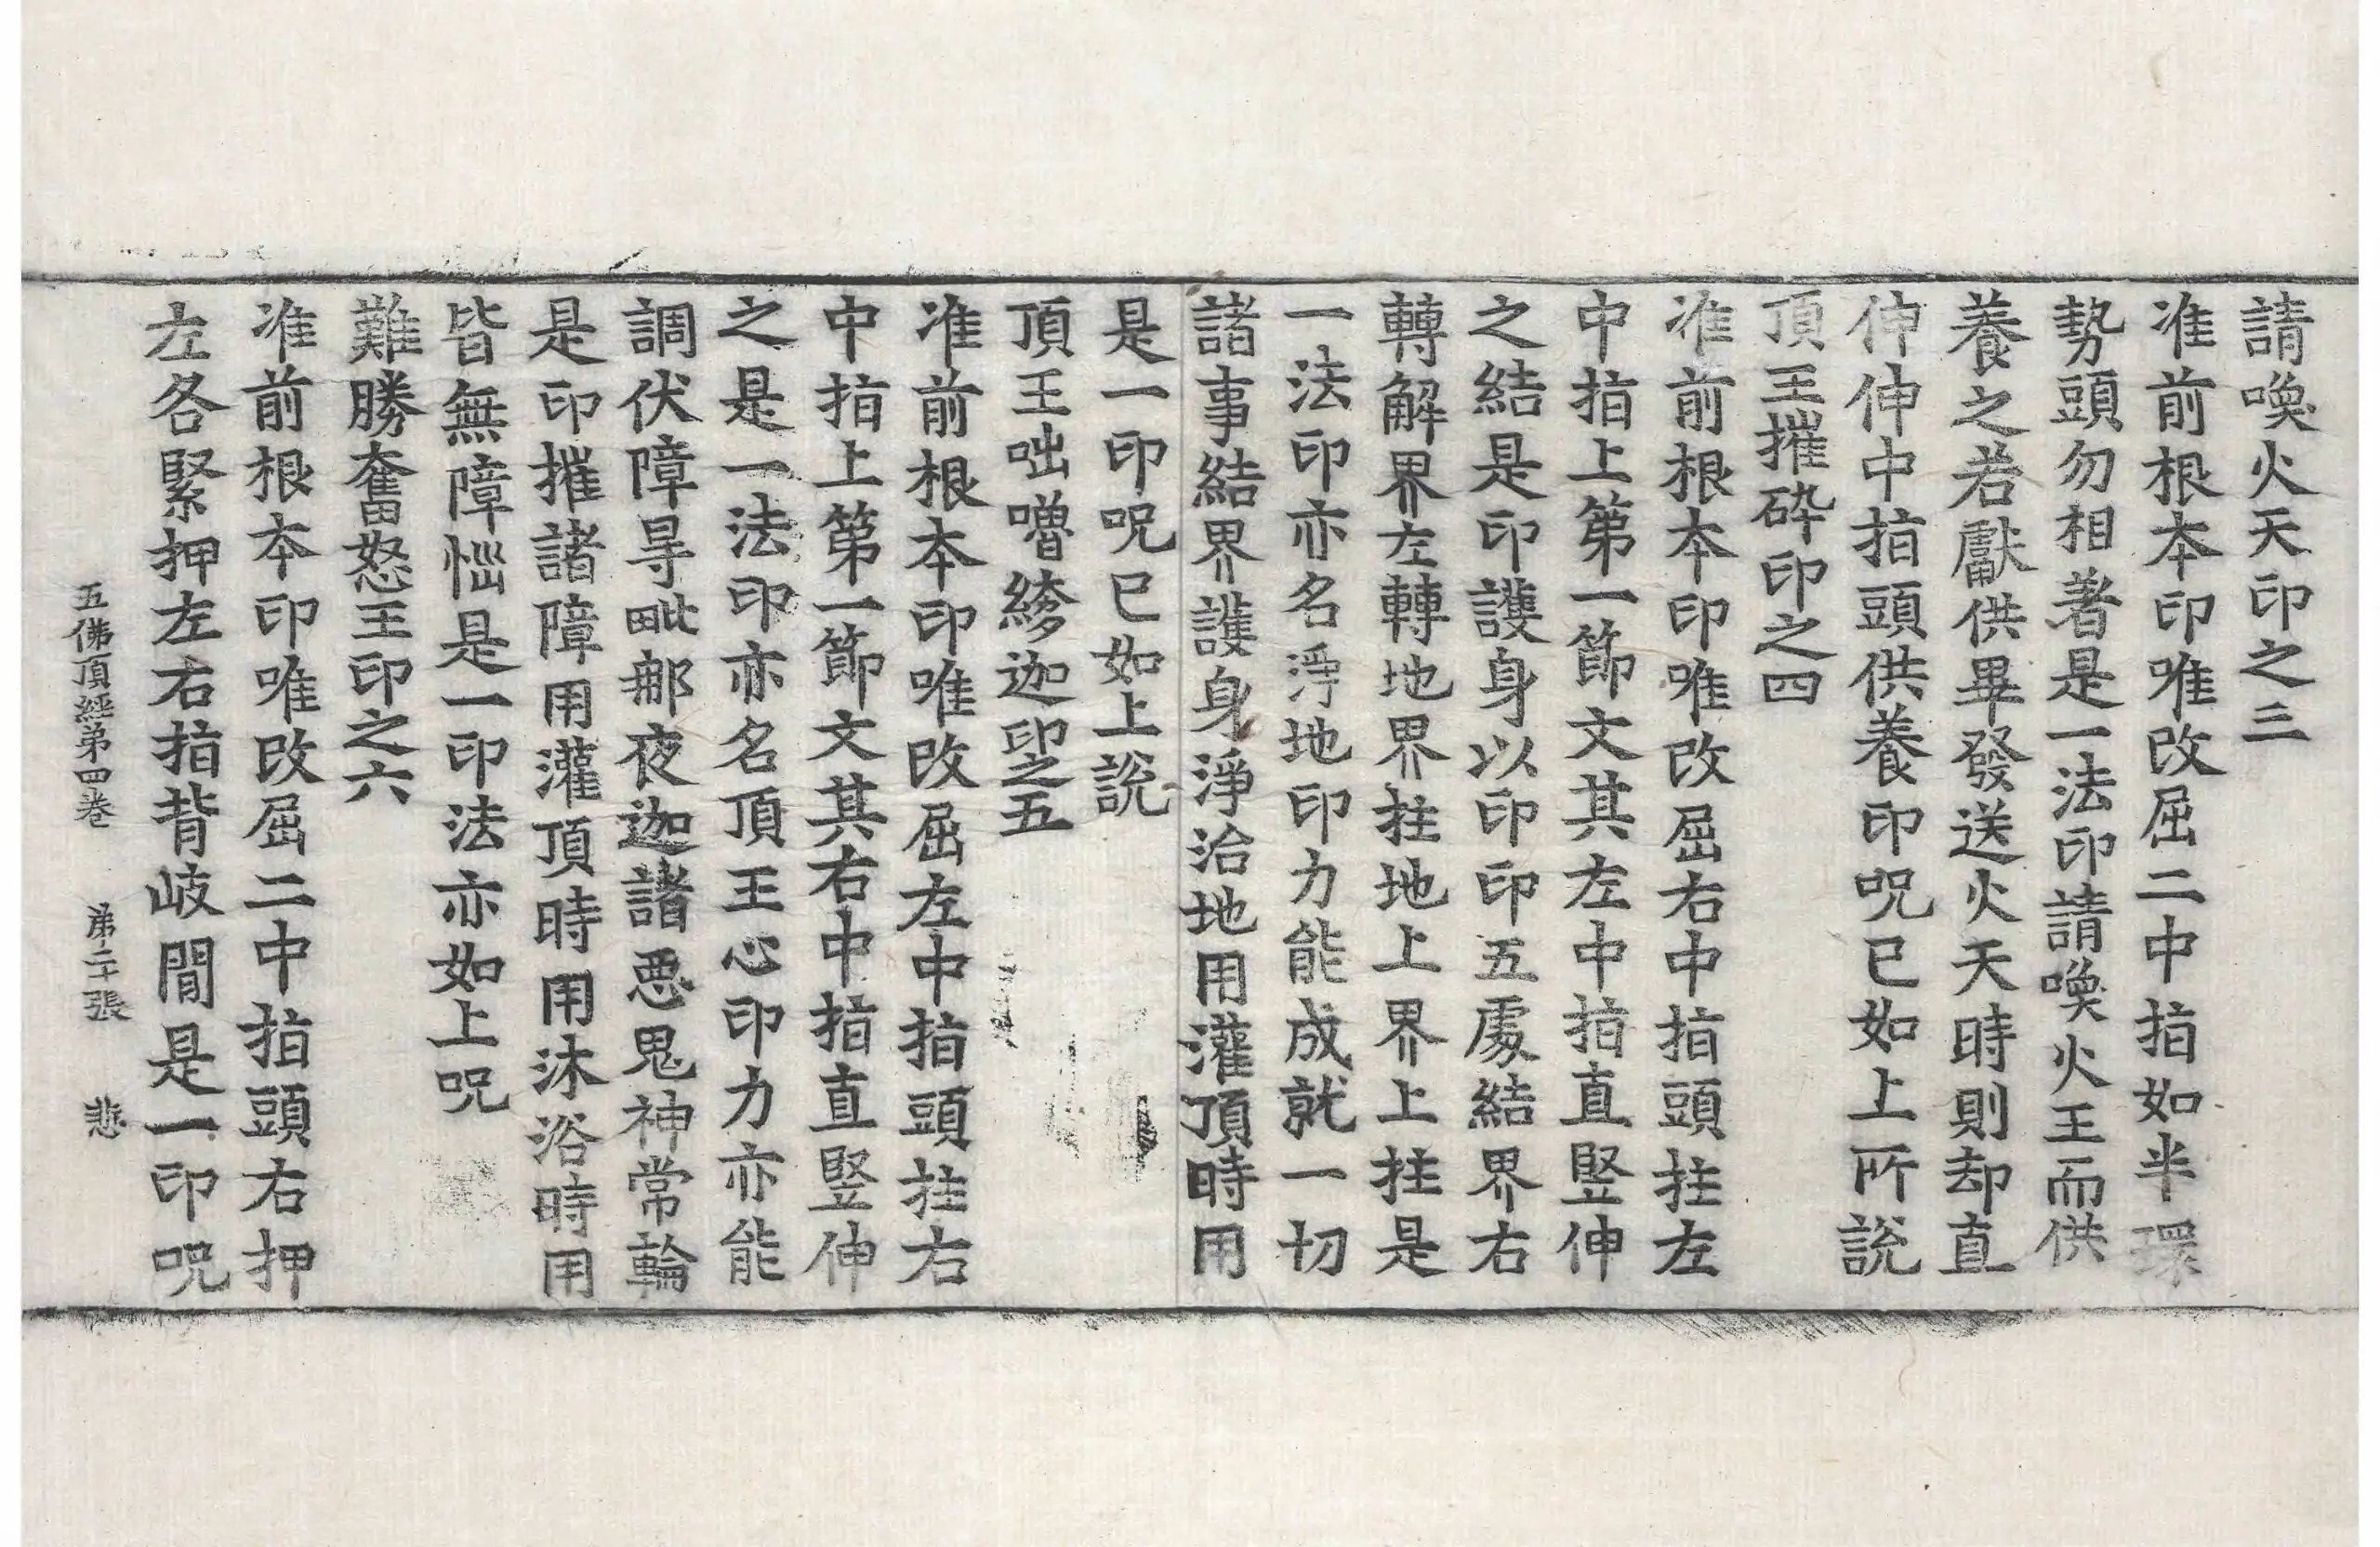 請喚火天印之三
准前根本印唯改屈二中指如半環
勢頭勿相著是一法印請喚火王而供
養之若獻供畢發送火天時則却直
伸伸中指頭供養印呪已如上所說
頂王摧碎印之四
准前根本印唯改屈右中指頭拄左
中指上第一節文其左中指直竪伸
之結是印護身以印印五處結界右
轉解界左轉地界拄地上界上拄是
一法印亦名淨地印力能成就一切
諸事結界護身淨治地用灌頂時用
是一印呪已如上說
頂王咄嚕縿迦印之五
准前根本印唯改屈左中指頭拄右
中指上第一節文其右中指直竪伸
之是一法印亦名頂王心印力亦能
調伏障㝵毗那夜迦諸惡鬼神常輪
是印摧諸障用灌頂時用沐浴時用
皆無障惱是一印法亦如上呪
難勝奮怒王印之六
准前根本印唯改屈二中指頭右押
左各緊押左右指背岐間是一印呪
五佛頂經第四卷 第二十張 悲